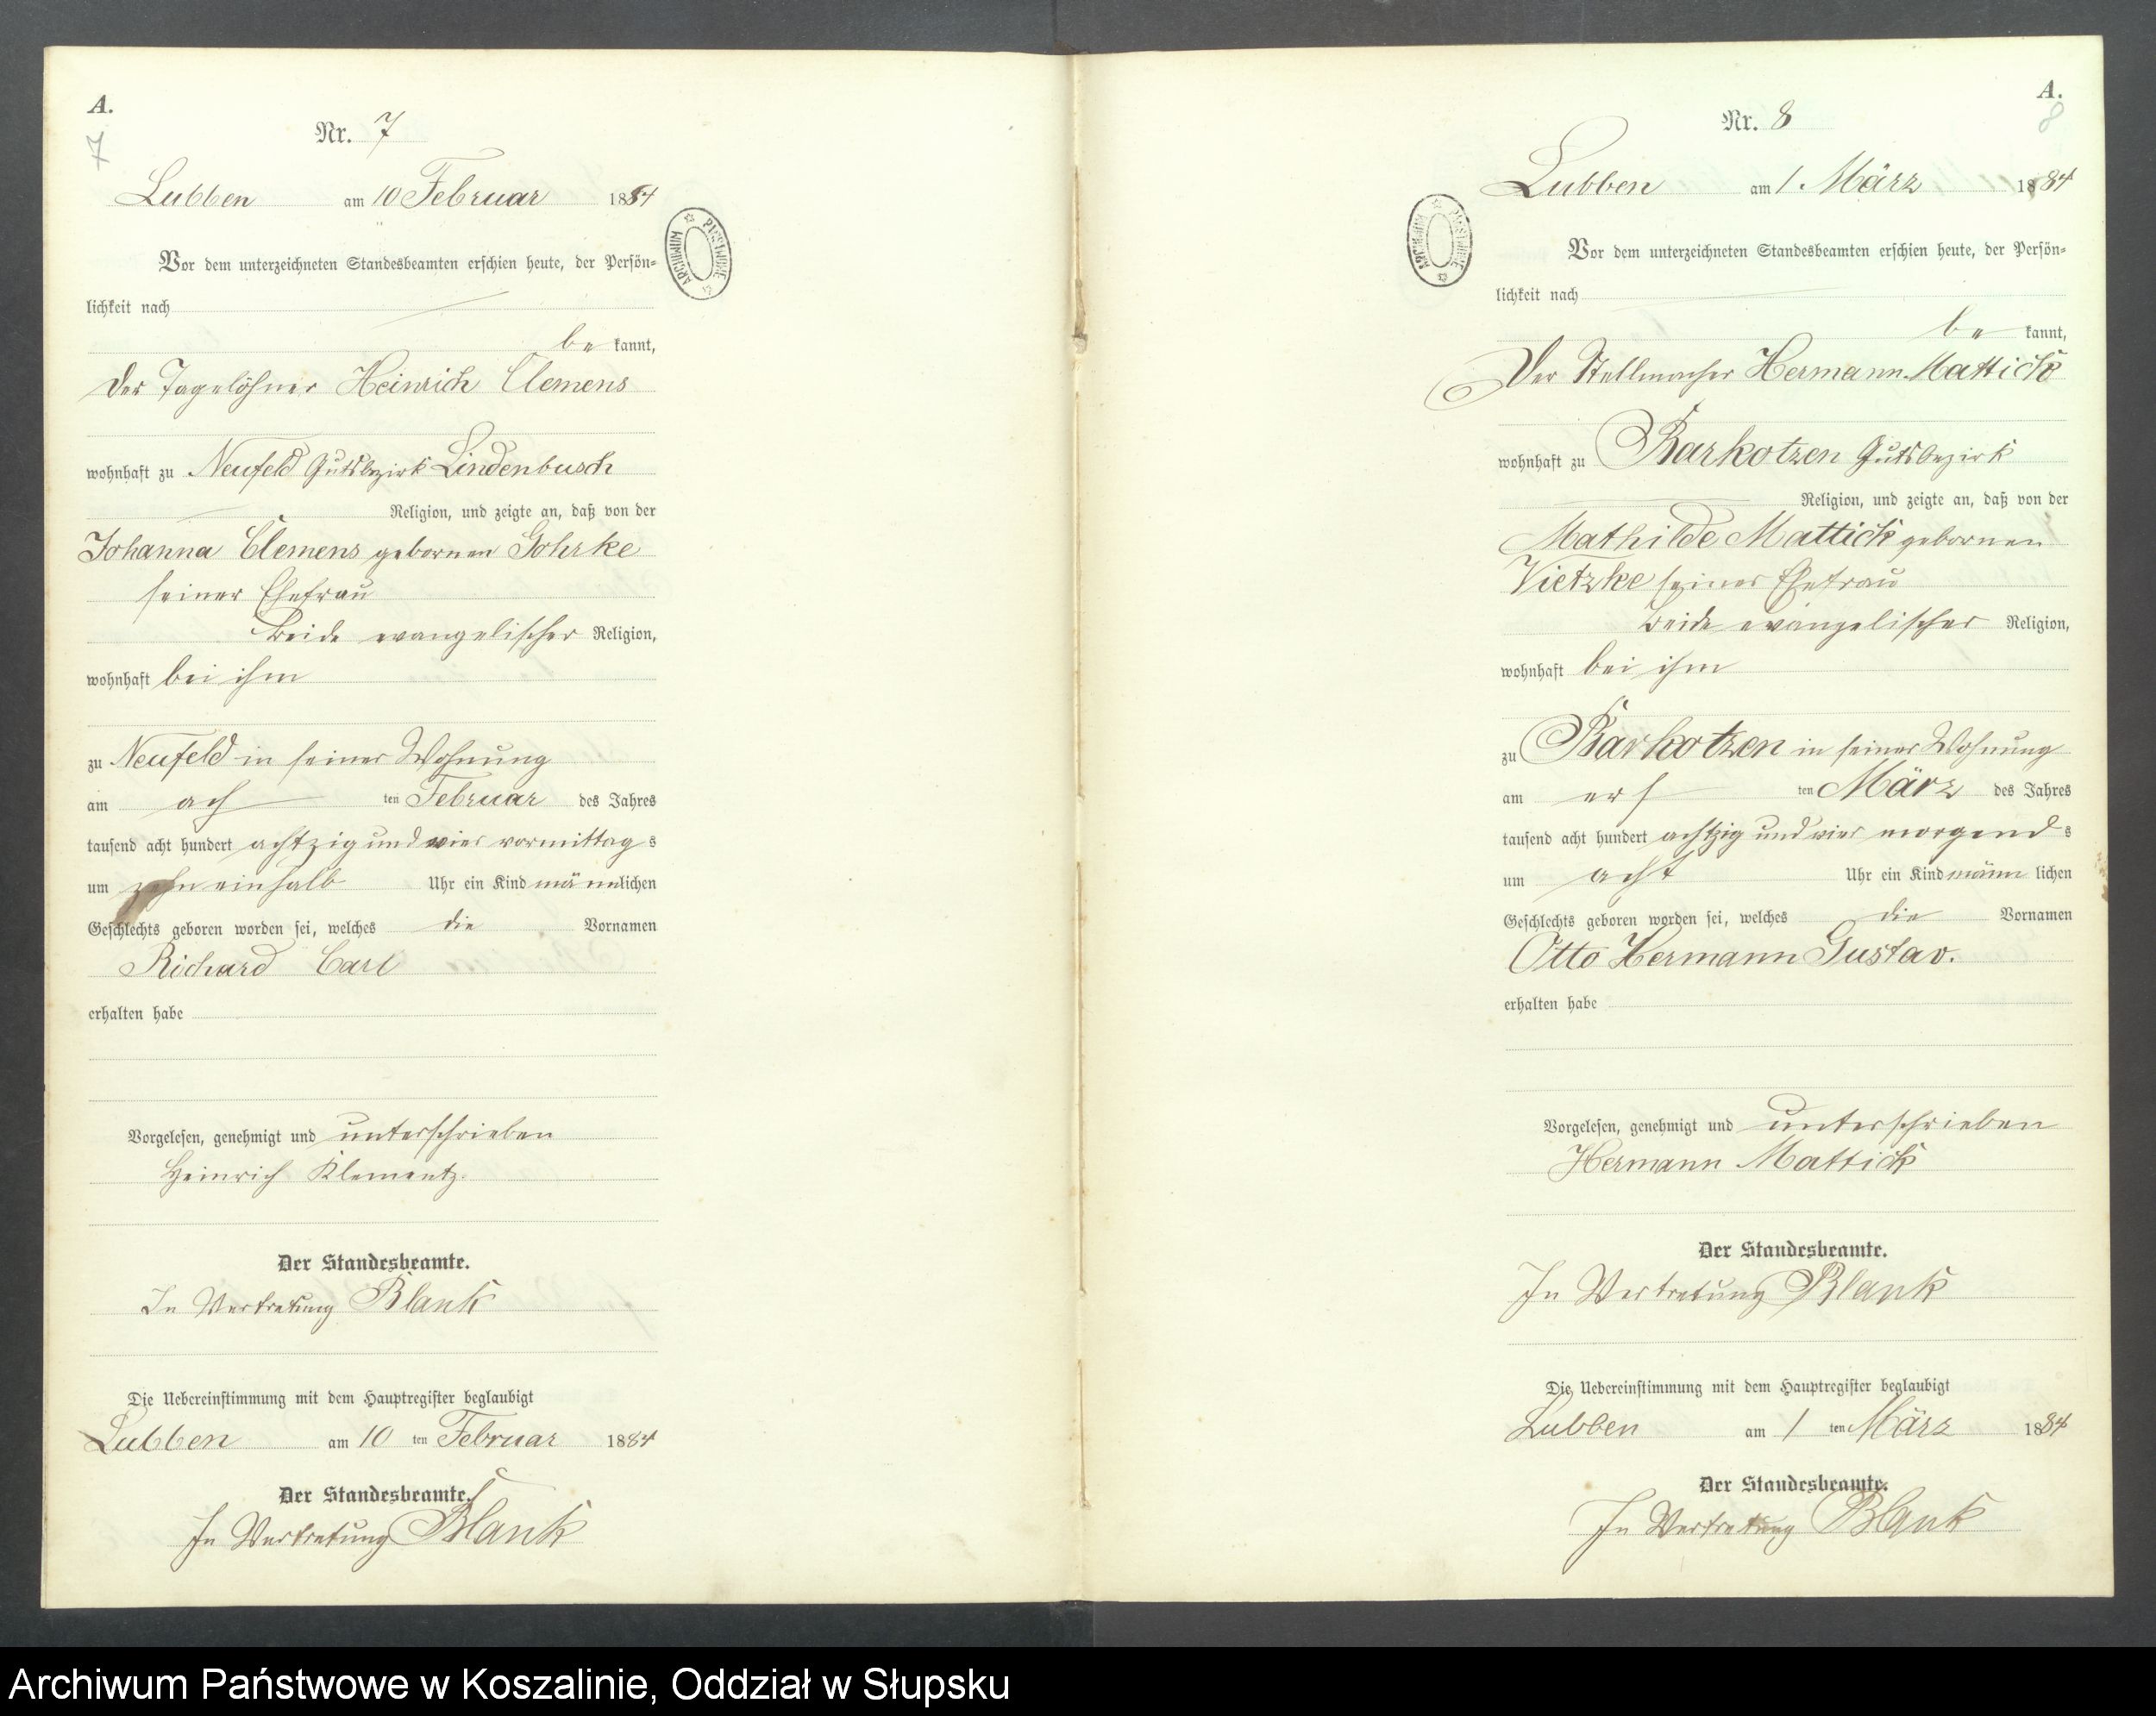 A.
7
Nr. 7
Lubben am 10 Februar 1884
Vor dem unterzeichneten Standesbeamten erschien heute, der Persön-
lichkeit nach
be kannt,
der Tagelöhner Heinrich Clemens
wohnhaft zu Neufeld Gutsbezirk Lindenbusch
Religion, und zeigte an, daß von der
Johanna Clemens gebornen Gohrke
seiner Ehefrau
beide evangelischer Religion,
wohnhaft bei ihm
zu Neufeld in seiner Wohnung
am ach ten Februar des Jahres
tausend acht hundert achtzig und vier vormittag s
um zehn einhalb Uhr ein Kind männlichen
Geschlechts geboren worden sei, welches die Vornamen
Richard Carl
erhalten habe
Vorgelesen, genehmigt und unterschrieben
Heinrich Klementz.
Der Standesbeamte.
In Vertretung Blank
Die Uebereinstimmung mit dem Hauptregister beglaubigt
Lubben am 10 ten Februar 1884
Der Standesbeamte.
In Vertretung Blank
ARCHIWUM PAŃSTWOWE
A.
8
Nr. 8
Lubben am 1 März 1884
Vor dem unterzeichneten Standesbeamten erschien heute, der Persön-
lichkeit nach
be kannt,
Der Stellmacher Hermann Mattick
wohnhaft zu Barkotzen Gutsbezirk
Religion, und zeigte an, daß von der
Mathilde Mattick gebornen
Vietzke seiner Ehefrau
beide evangelischer Religion,
wohnhaft bei ihm
zu Barkotzen in seiner Wohnung
am ers ten März des Jahres
tausend acht hundert achtzig und vier morgend s
um acht Uhr ein Kind männ lichen
Geschlechts geboren worden sei, welches die Vornamen
Otto Hermann Gustav.
erhalten habe
Vorgelesen, genehmigt und unterschrieben
Hermann Mattick
Der Standesbeamte.
In Vertretung Blank
Die Uebereinstimmung mit dem Hauptregister beglaubigt
Lubben am 1 ten März 1884
Der Standesbeamte.
In Vertretung Blank
ARCHIWUM PAŃSTWOWE
Archiwum Państwowe w Koszalinie, Oddział w Słupsku